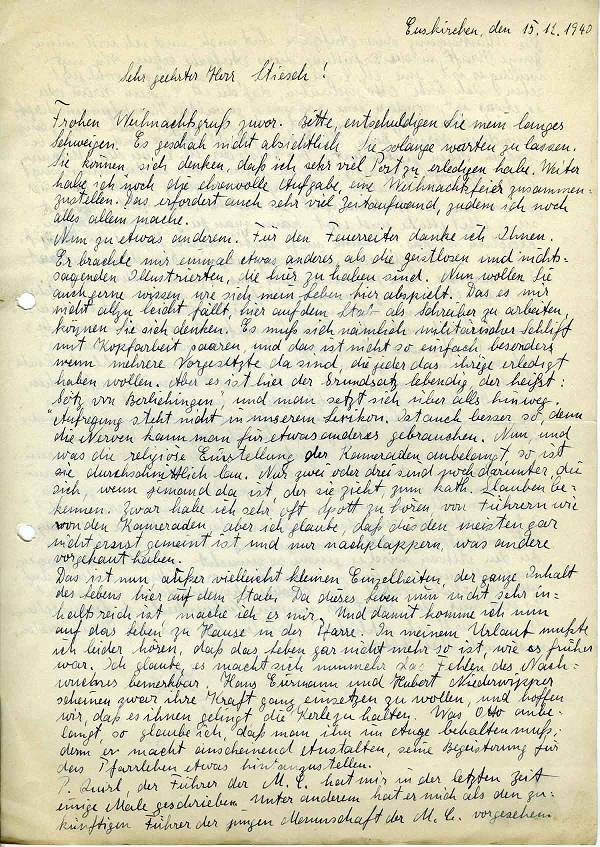 Euskirchen, den 15.12.1940
Sehr geehrter Herr Stiesch!
Frohen Weihnachtsgruß zuvor. Bitte, entschuldigen Sie mein langes
Schweigen. Es geschah nicht absichtlich Sie solange warten zu lassen.
Sie können, sich denken, daß ich sehr viel Post zu erledigen habe. Weiter
habe ich noch die ehrenvolle Aufgabe, eine Weihnachtsfeier zusammen-
zustellen. Das erfordert auch sehr viel Zeitaufwand, zudem ich noch
alles allein mache.
Nun zu etwas anderem. Für den Feuerreiter danke ich Ihnen.
Er brachte mir einmal etwas anderes, als die geistlosen und nichts-
sagenden Illustrierten, die hier zu haben sind. Nun wollen Sie
auch gerne wissen, wie sich mein Leben hier abspielt. Das es mir
nicht allzu leicht fällt, hier auf dem Stab als Schreiber zu arbeiten,
können Sie sich denken. Es muß sich nämlich militärischer Schliff
mit Kopfarbeit paaren, und das ist nicht so einfach besonders
wenn mehrere Vorgesetzte da sind, die jeder das ihrige erledigt
haben wollen. Aber es ist hier der Grundsatz lebendig, der heißt:
Götz von Berlichingen, und man setzt sich über alles hinweg.
"Aufregung steht nicht in unserem Lexikon. Ist auch besser so, denn
die Nerven kann man für etwas anderes gebrauchen. Nun, und
was die religiöse Einstellung der Kameraden anbelangt, so ist
sie durchschnittlich lau. Nur zwei oder drei sind noch darunter, die
sich, wenn jemand da ist, der sie zieht zum kath. Glauben be-
kennen. Zwar habe ich sehr oft Spott zu hören von Führern wie
von den Kameraden, aber ich glaube, daß dies den meisten gar
nicht ernst gemeint ist und nur nachplappern, was andere
vorgekaut haben.
Das ist nun, außer vielleicht kleinen Einzelheiten, der ganze Inhalt
des Lebens hier auf dem Stabe. Da dieses Leben nun nicht sehr in-
haltsreich ist, mache ich es mir. Und damit komme ich nun
auf das Leben zu Hause in der Pfarre. In meinem Urlaub mußte
ich leider hören, daß das Leben gar nicht mehr so ist, wie es früher
war. Ich glaube, es macht sich nunmehr das Fehlen des Nach-
wuchses bemerkbar. Hans Eurmann und Hubert Niederwipper
scheinen zwar ihre Kraft ganz einsetzen zu wollen, und hoffen
wir, daß es ihnen gelingt die Kerle zu halten. Was Otto anbe-
langt, so glaube ich, daß man ihn im Auge behalten muß,
denn er macht anscheinend Anstalten, seine Begeisterung für
das Pfarrleben etwas hintanzustellen.
P. der Führer der M.C. hat mir in der letzten Zeit
einige Male geschrieben. Unter anderem hat er mich als den zu-
künftigen Führer der jungen Mannschaft der M.C. vorgesehen.